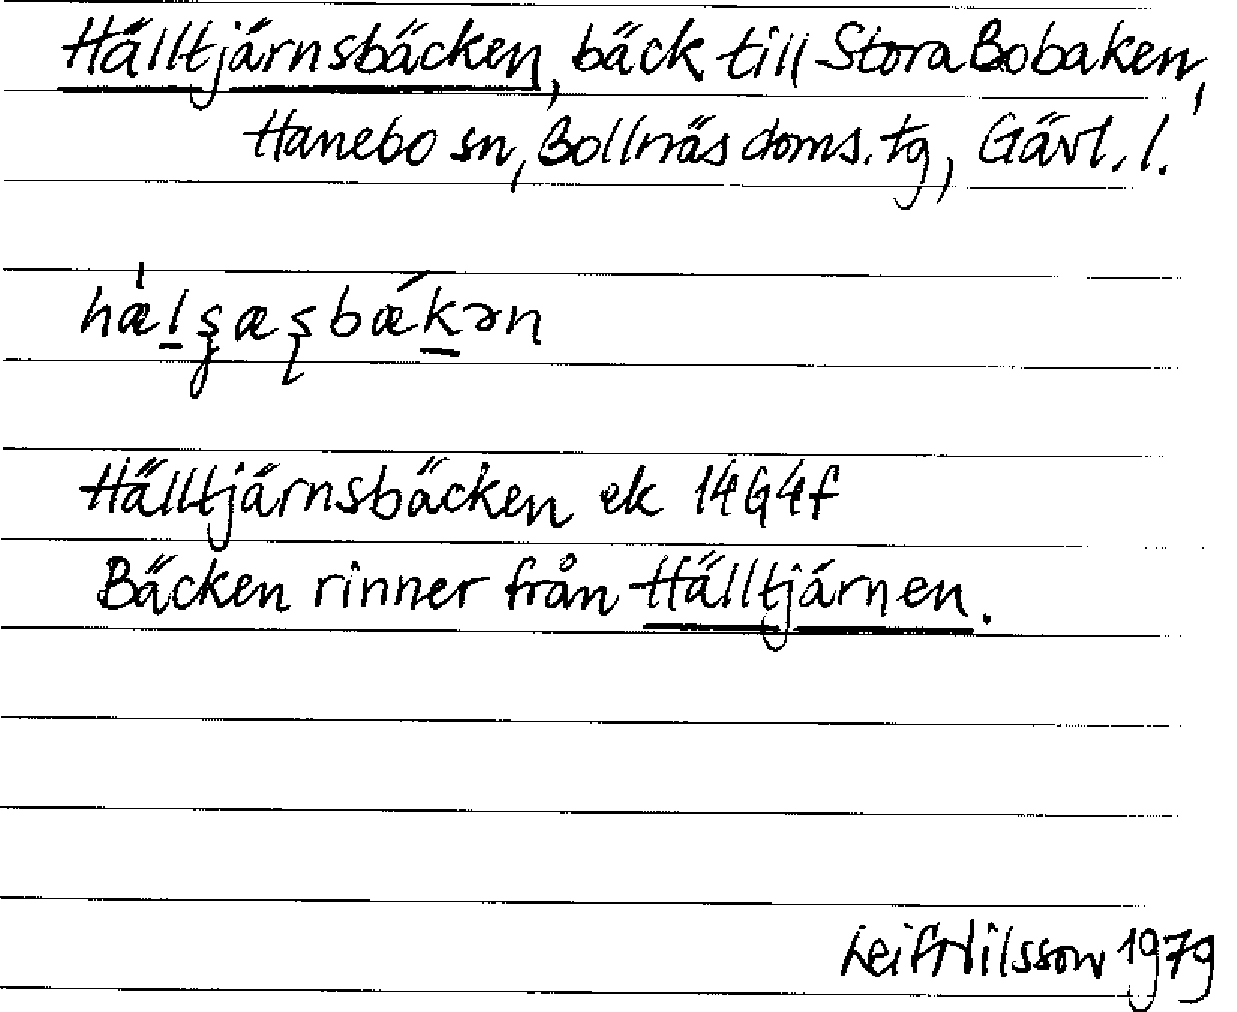 Hälltjärnsbäcken, bäck till Stora Bobaken,
Hanebo sn, Bollnäs doms. tg, Gävl. l.
Hälltjärnsbäcken ek 14G4f
Bäcken rinner från Hälltjärnen.
Leif Nilsson 1979